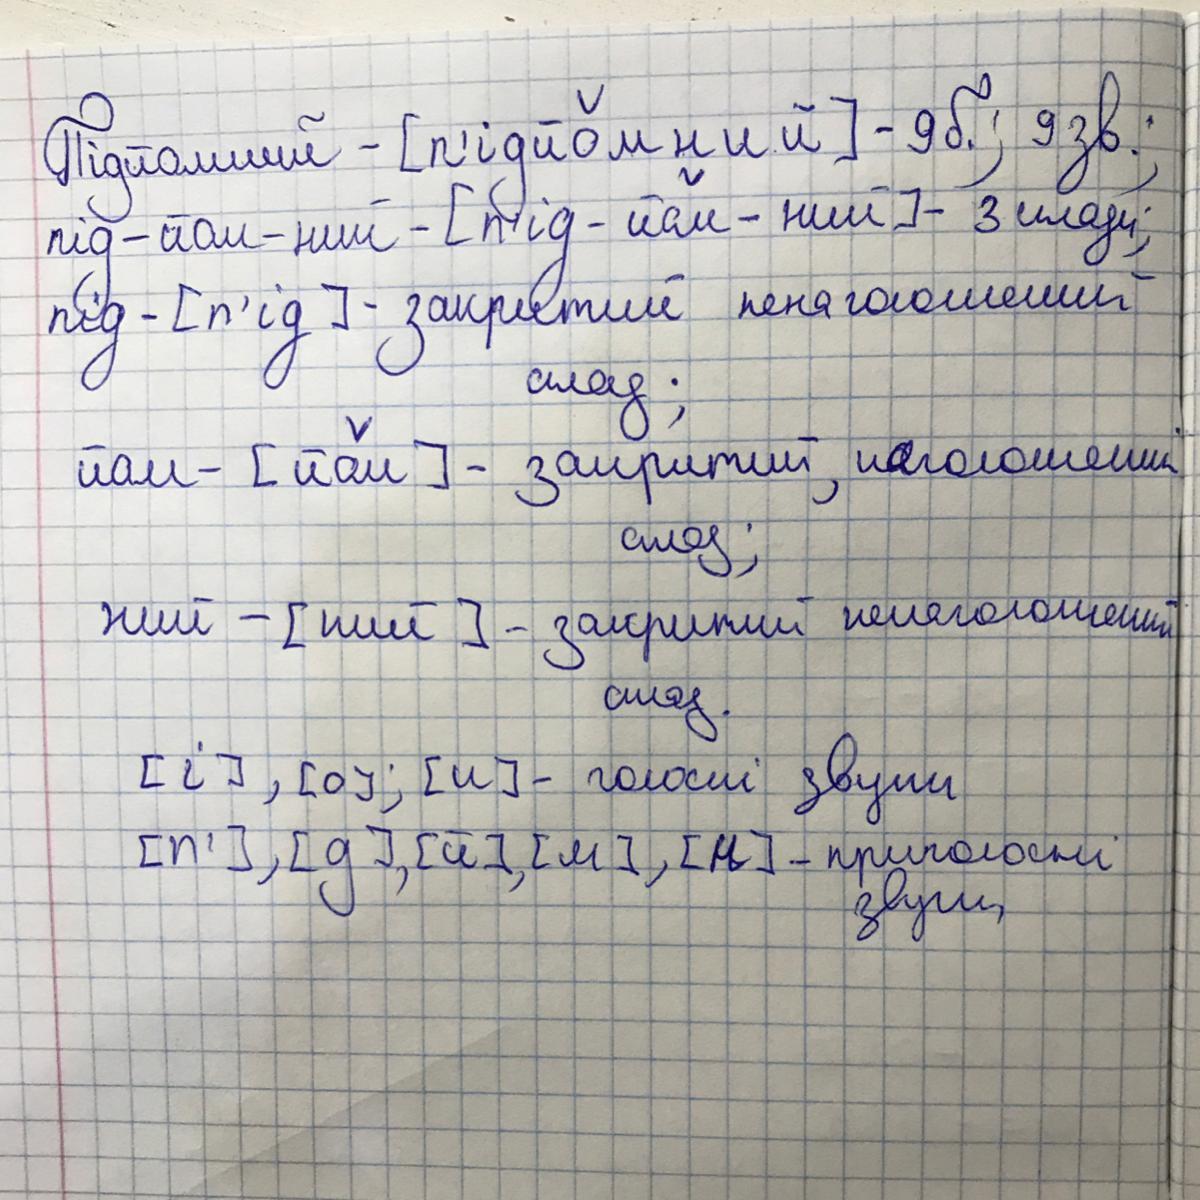 Підйомний - [п'ідйомний] - 9 б.; 9 зв.;
під-йом-ний - [п'ід-йом-ний] - 3 склади;
під - [п'ід] - закритий ненаголошений
склад;
йом - [йом] - закритий, наголошений
склад;
ний - [ний] - закритий ненаголошений
склад.
[і], [о]; [и] - голосні звуки
[п'], [д], [й], [м], [н] - приголосні
звуки